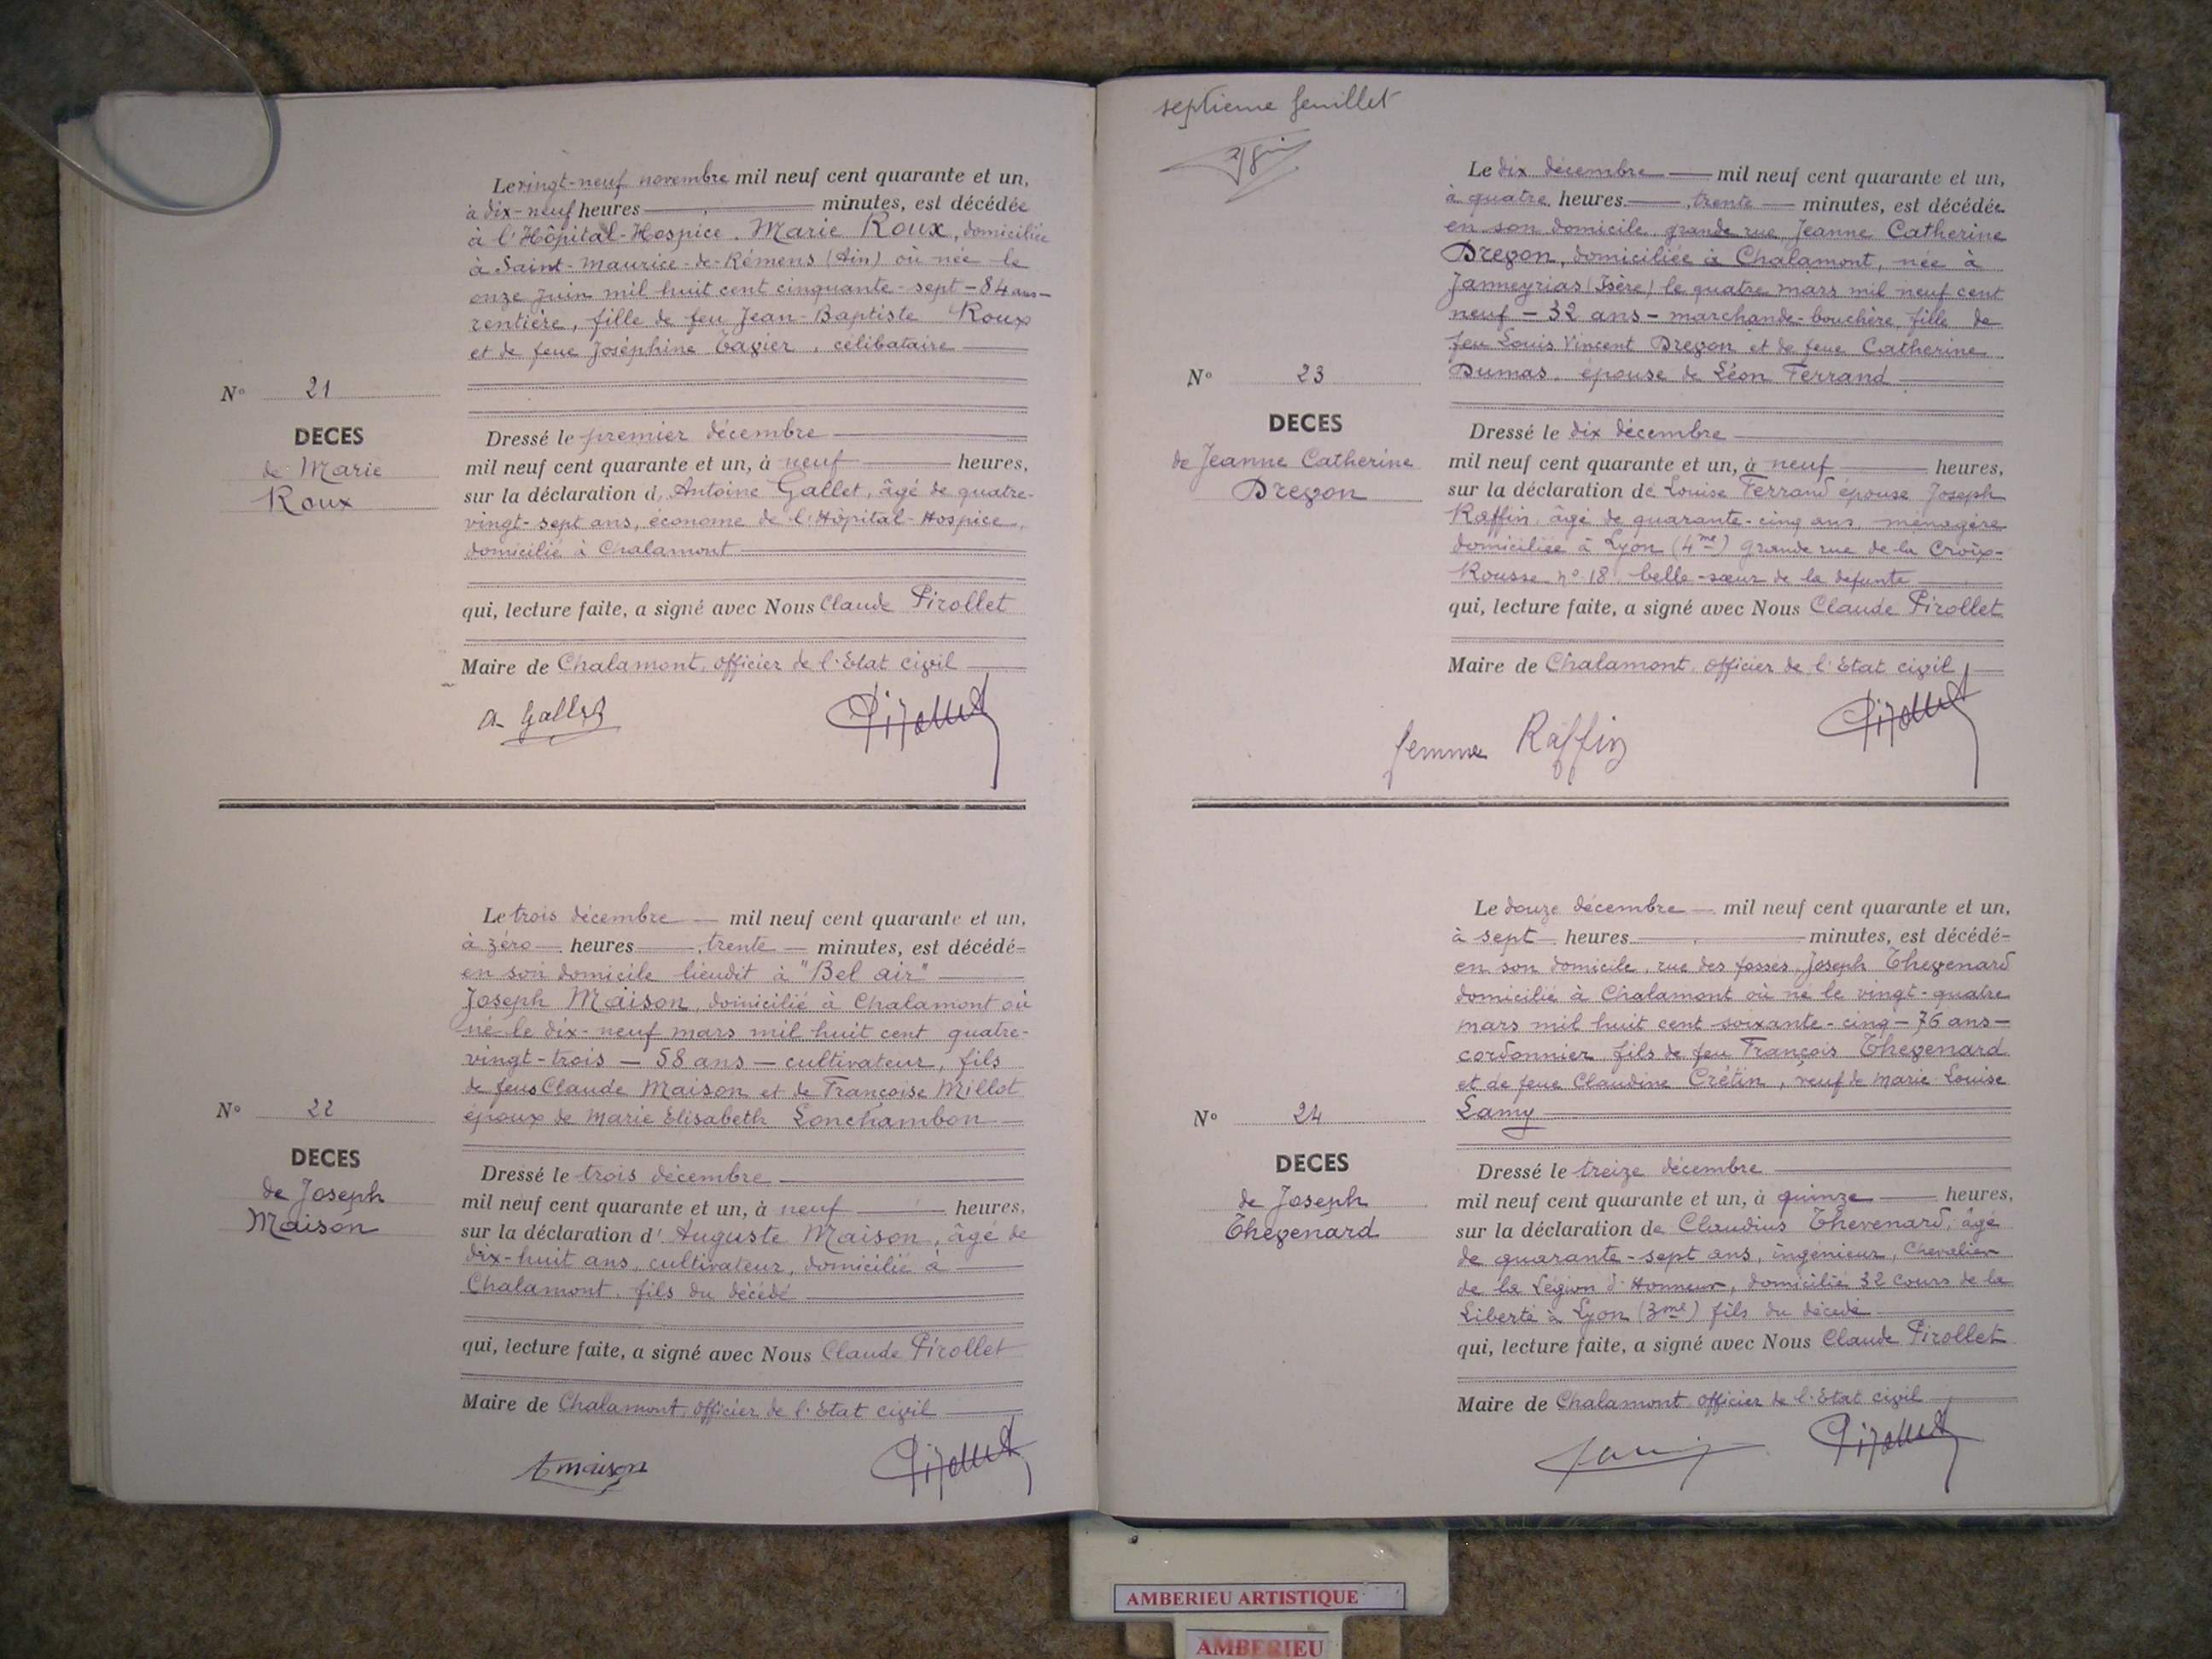 Le vingt-neuf novembre mil neuf cent quarante et un,
à dix-neuf heures minutes, est décédée
à l'Hôpital-Hospice, Marie Roux, domiciliée
à Saint-Maurice-de-Rémens (Ain) où née le
onze juin mil huit cent cinquante-sept - 84 ans -
rentière, fille de feu Jean-Baptiste Roux
et de feue Joséphine Tavier, célibataire
N° 21
DECES
de Marie
Roux
Dressé le premier décembre
mil neuf cent quarante et un, à neuf heures,
sur la déclaration d, Antoine Gallet, âgé de quatre-
vingt-sept ans, économe de l'Hôpital-Hospice,
domicilié à Chalamont
qui, lecture faite, a signé avec Nous Claude Pirollet
Maire de Chalamont, officier de l'Etat civil
A Gallet
Pirollet
Le trois décembre mil neuf cent quarante et un,
à zéro heures trente minutes, est décédé
en son domicile lieudit à "Bel air"
Joseph Maison, domicilié à Chalamont où
né le dix-neuf mars mil huit cent quatre-
vingt-trois - 58 ans - cultivateur, fils
de feus Claude Maison et de Françoise Millot
époux de Marie Elisabeth Lonchambon
N° 22
DECES
de Joseph
Maison
Dressé le trois décembre
mil neuf cent quarante et un, à neuf heures,
sur la déclaration d'Auguste Maison, âgé de
dix-huit ans, cultivateur, domicilié à
Chalamont, fils du décédé
qui, lecture faite, a signé avec Nous Claude Pirollet
Maire de Chalamont, officier de l'Etat civil
A maison
Pirollet
septieme feuillet
Le dix décembre mil neuf cent quarante et un,
à quatre heures trente minutes, est décédée
en son domicile, grande rue, Jeanne Catherine
Drevon, domiciliée à Chalamont, née à
Janneyrias (Isère) le quatre mars mil neuf cent
neuf - 32 ans - marchande-bouchère, fille de
feu Louis Vincent Drevon et de feue Catherine
Dumas, épouse de Léon Ferrand
N° 23
DECES
de Jeanne Catherine
Drevon
Dressé le dix décembre
mil neuf cent quarante et un, à neuf heures,
sur la déclaration de Louise Ferrand épouse Joseph
Raffin, âgé de quarante-cinq ans, ménagère
domiciliée à Lyon (4me) Grande rue de la Croix-
Rousse n° 18, belle-sœur de la defunte
qui, lecture faite, a signé avec Nous Claude Pirollet
Maire de Chalamont, officier de l'Etat civil
femme Raffin
Pirollet
Le douze décembre mil neuf cent quarante et un,
à sept heures minutes, est décédé
en son domicile, rue des fossés, Joseph Thevenard
domicilié à Chalamont où né le vingt-quatre
mars mil huit cent soixante-cinq - 76 ans -
cordonnier, fils de feu François Thevenard
et de feue Claudine Crétin, veuf de Marie-Louise
Lamy
N° 24
DECES
de Joseph
Thevenard
Dressé le treize décembre
mil neuf cent quarante et un, à quinze heures,
sur la déclaration de Claudius Thevenard, âgé
de quarante-sept ans, ingénieur, Chevalier
de la Légion d'Honneur, domicilié 32 Cours de la
Liberté à Lyon (3me) fils du décédé
qui, lecture faite, a signé avec Nous Claude Pirollet
Maire de Chalamont, officier de l'Etat civil
Pirollet
AMBERIEU ARTISTIQUE
AMBERIEU